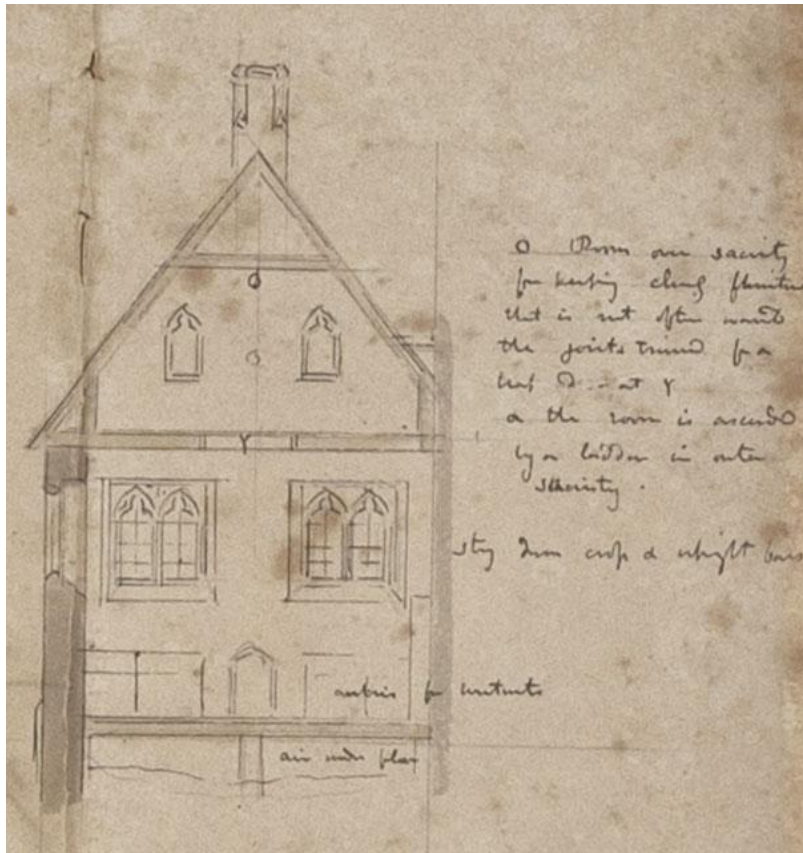 O Room over sacristy
for keeping church furniture
that is not often wanted
the joists trimed for a
trap D at Y
the room is ascended
by a ladder in outer
sacristy.
iron cross & upright bars
for vestments
air under floor